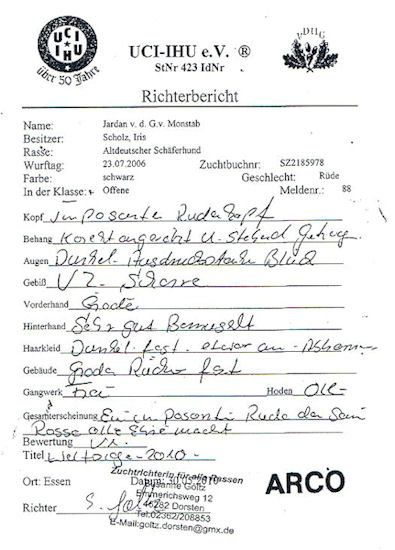 UCI
IHU
über 50 Jahre
UCI-IHU e.V. ®
StNr 423 IdNr
Richterbericht
Name: Jardan v. d. G.v. Monstab
Besitzer: Scholz, Iris
Rasse: Altdeutscher Schäferhund
Wurftag: 23.07.2006 Zuchtbuchnr: SZ2185978
Farbe: schwarz Geschlecht: Rüde
In der Klasse: Offene Meldenr.: 88
Kopf imposanter Rüdekopf
Behang Korekt angesetzt u. stehend
Augen Dunkel Ausdrucksstark Blick
Gebiß Schere
Vorderhand Grade
Hinterhand Sehr gut Bemuskelt
Haarkleid Dunkel fest etwas am
Gebäude Grader Rücken fest
Gangwerk Frei Hoden OK
Gesamterscheinung Ein imposanter Rüde der Sein
Rasse alle Ehre macht
Bewertung V1
Titel 2010
Ort: Essen Datum: 30.05.2010
Zuchtrichterin für alle Rassen
Susanne Goltz
Emmerichsweg 12
46282 Dorsten
Richter
Tel.02362/208853
E-Mail:goltz.dorsten@gmx.de
ARCO